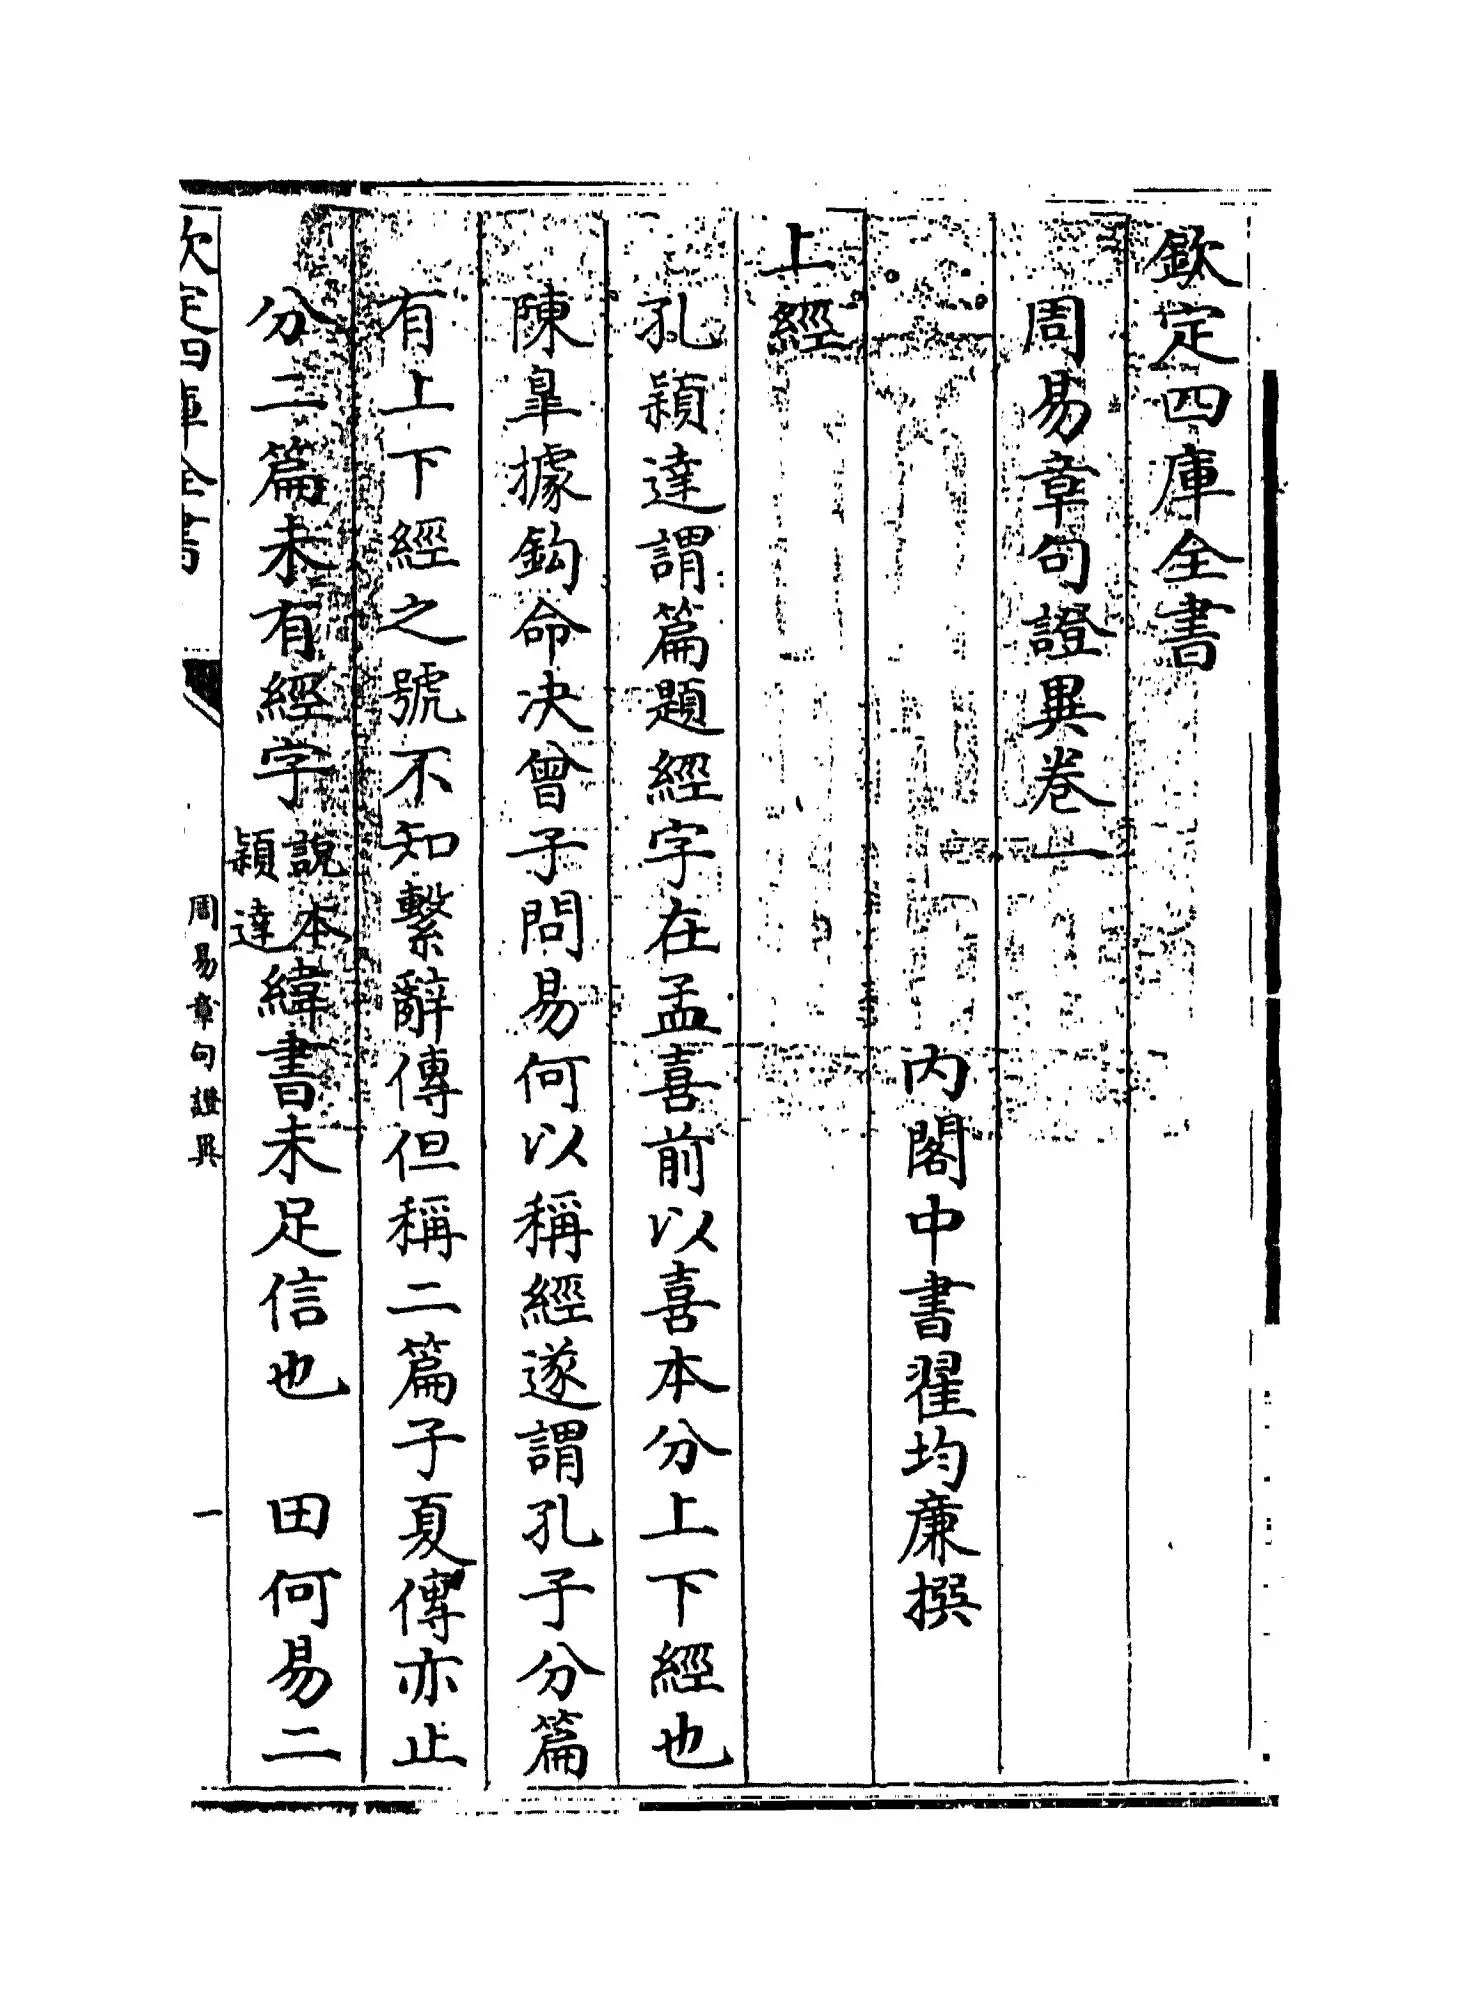 欽定四庫全書
周易章句證異卷一
內閣中書翟均廉撰
上經
孔穎達謂篇題經字在孟喜前以喜本分上下經也
陳臯據鈎命决曾子問易何以稱經遂謂孔子分篇
有上下經之號不知繫辭傳但稱二篇子夏傳亦止
分二篇未有經字說本穎達緯書未足信也　田何易二
欽定四庫全書
周易章句證異
一